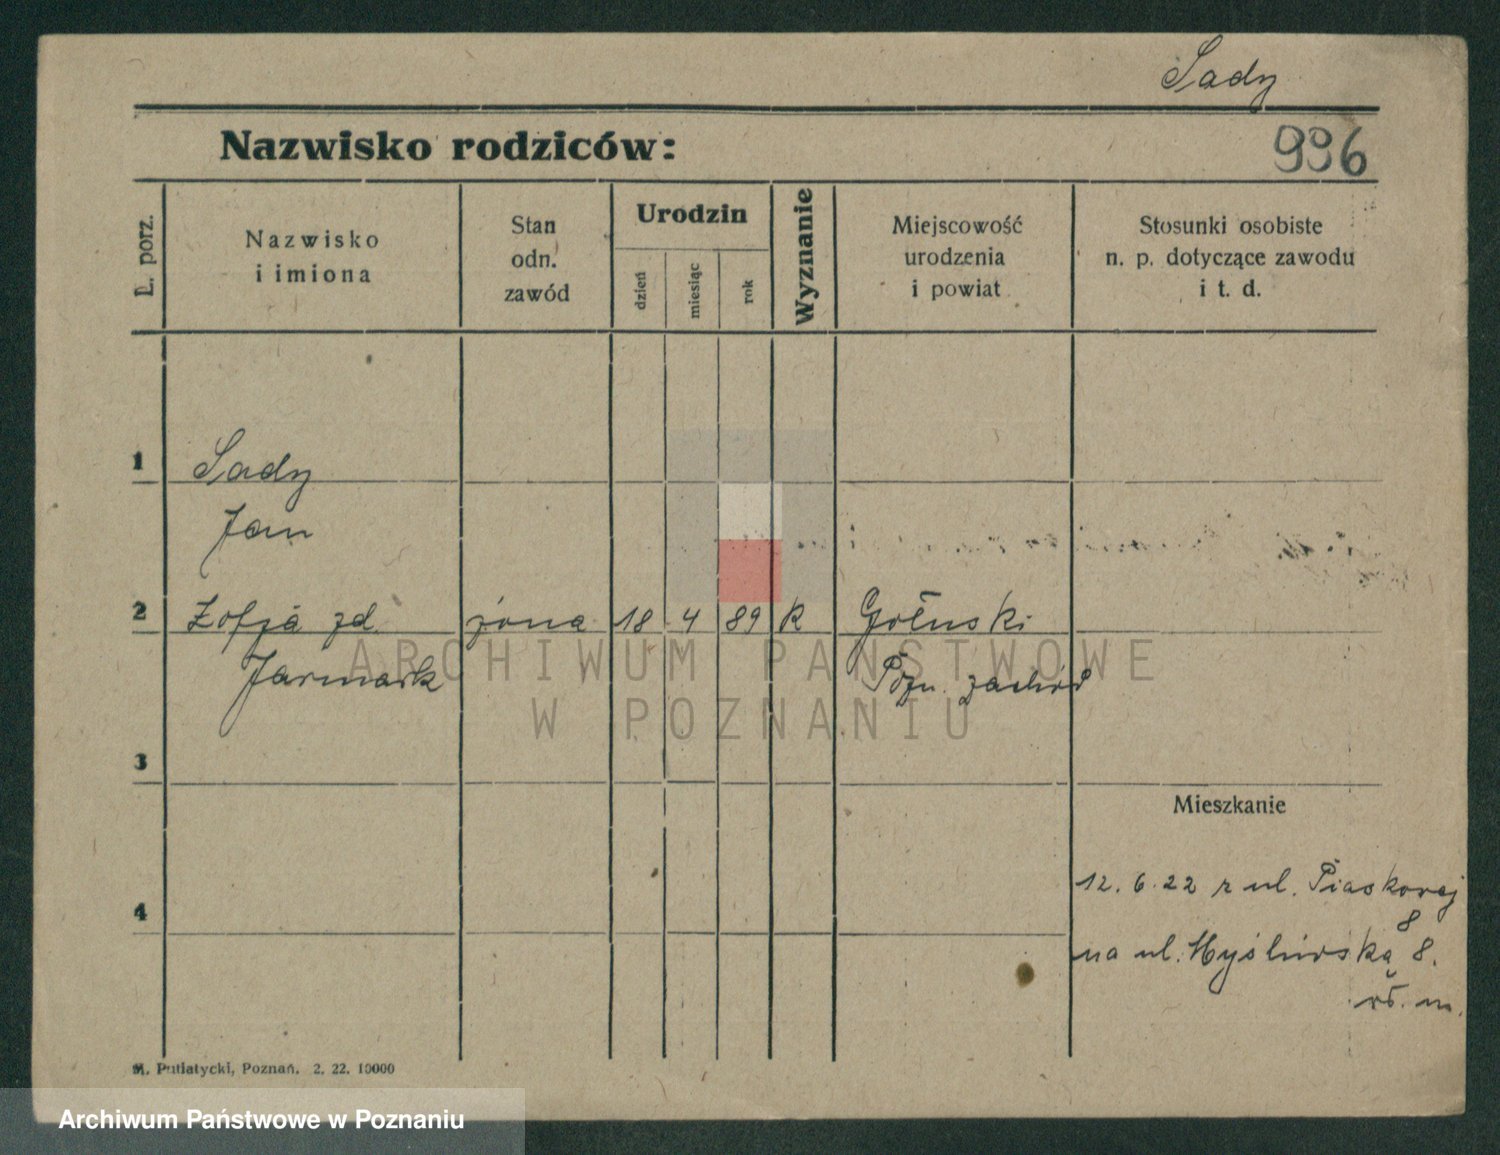 Sady
Nazwisko rodziców:
996
L. porz.
Nazwisko
i imiona
Stan
odn.
zawód
Urodzin
dzień
miesiąc
rok
Wyznanie
Miejscowość
urodzenia
i powiat
Stosunki osobiste
n. p. dotyczące zawodu
i t. d.
1 Sady
Jan
2 Zofja zd. żona 18 4 89 k Gołuski
Jarmark Pozn. zachód
ARCHIWUM PAŃSTWOWE
W POZNANIU
3
Mieszkanie
12. 6. 22 z ul. Piaskowej
8
4
na ul. Myśliwską 8.
wł. m.
M. Putiatycki, Poznań. 2. 22. 10000
Archiwum Państwowe w Poznaniu